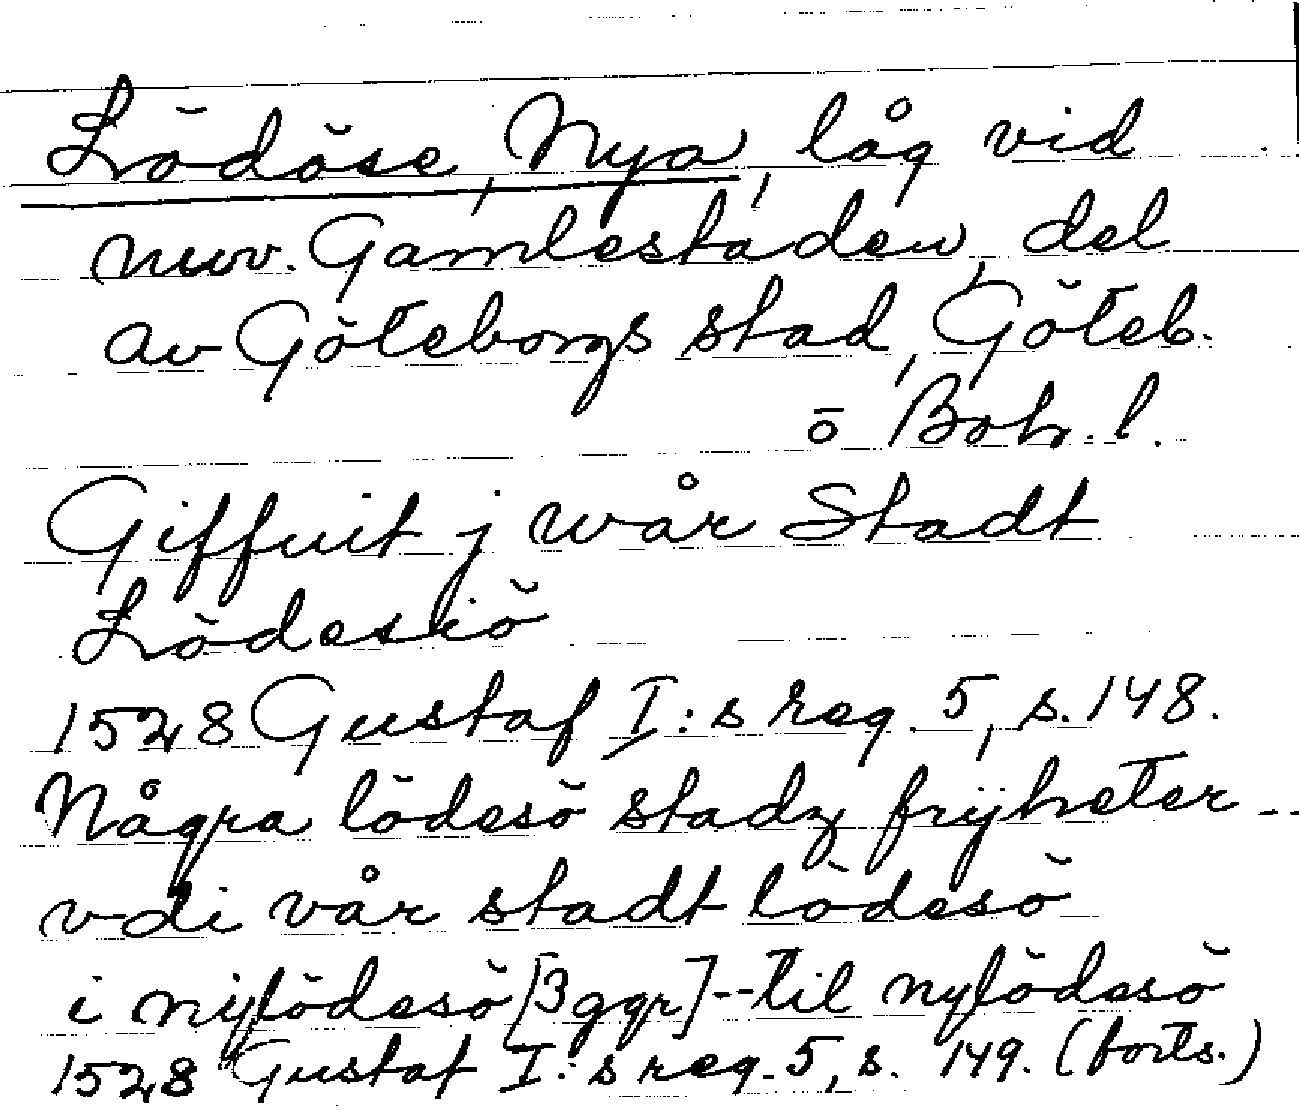 Lödöse, Nya, låg vid
nuv. Gamlestaden, del
av Göteborgs stad, Göteb.
o Boh. l.
Giffuit j wår Stadt
Lödesiö
1528 Gustaf I:s reg. 5, s. 148.
Några lödesö stadz frijheter --
vdi vår stadt lödesö
i nijlödesö [3 ggr] -- til nylödesö
1528 Gustaf I:s reg. 5, s. 149. (forts.)